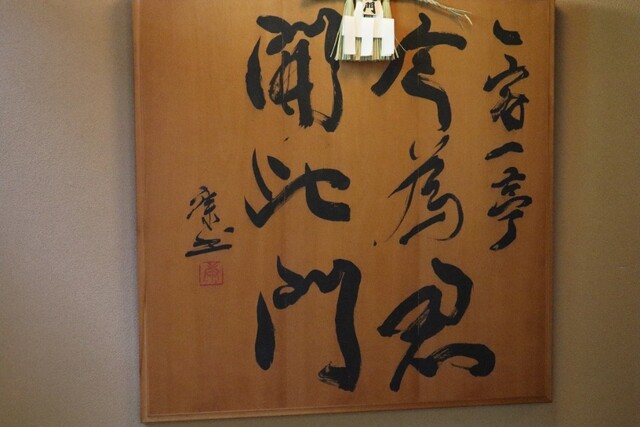 一客一亭
今為君
開此門